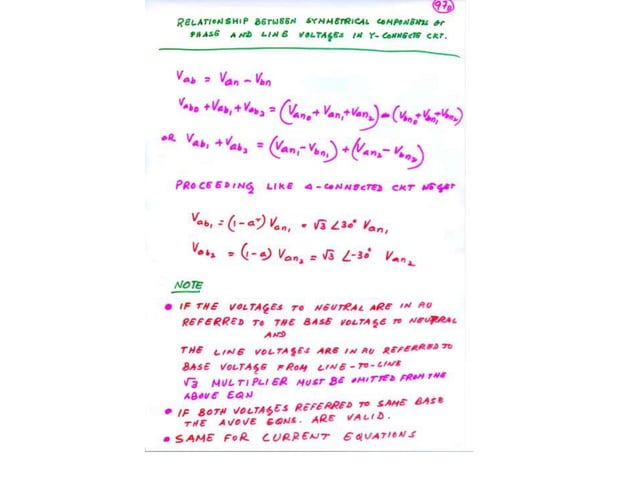 97a
RELATIONSHIP BETWEEN SYMMETRICAL COMPONENTS OF
PHASE AND LINE VOLTAGES IN Y-CONNECTE CKT.
Vab = Van - Vbn
Vab0 + Vab1 + Vab2 = (Van0 + Van1 + Van2) - (Vbn0 + Vbn1 + Vbn2)
OR Vab1 + Vab2 = (Van1 - Vbn1) + (Van2 - Vbn2)
PROCEEDING LIKE Δ-CONNECTED CKT WE GET
Vab1 = (1-a²) Van1 = √3 ∠30° Van1
Vab2 = (1-a) Van2 = √3 ∠-30° Van2
NOTE
• IF THE VOLTAGES TO NEUTRAL ARE IN PU
REFERRED TO THE BASE VOLTAGE TO NEUTRAL
AND
THE LINE VOLTAGES ARE IN PU REFERRED TO
BASE VOLTAGE FROM LINE-TO-LINE
√3 MULTIPLIER MUST BE OMITTED FROM THE
ABOVE EQN
• IF BOTH VOLTAGES REFERRED TO SAME BASE
THE AVOVE EQNS. ARE VALID.
• SAME FOR CURRENT EQUATIONS